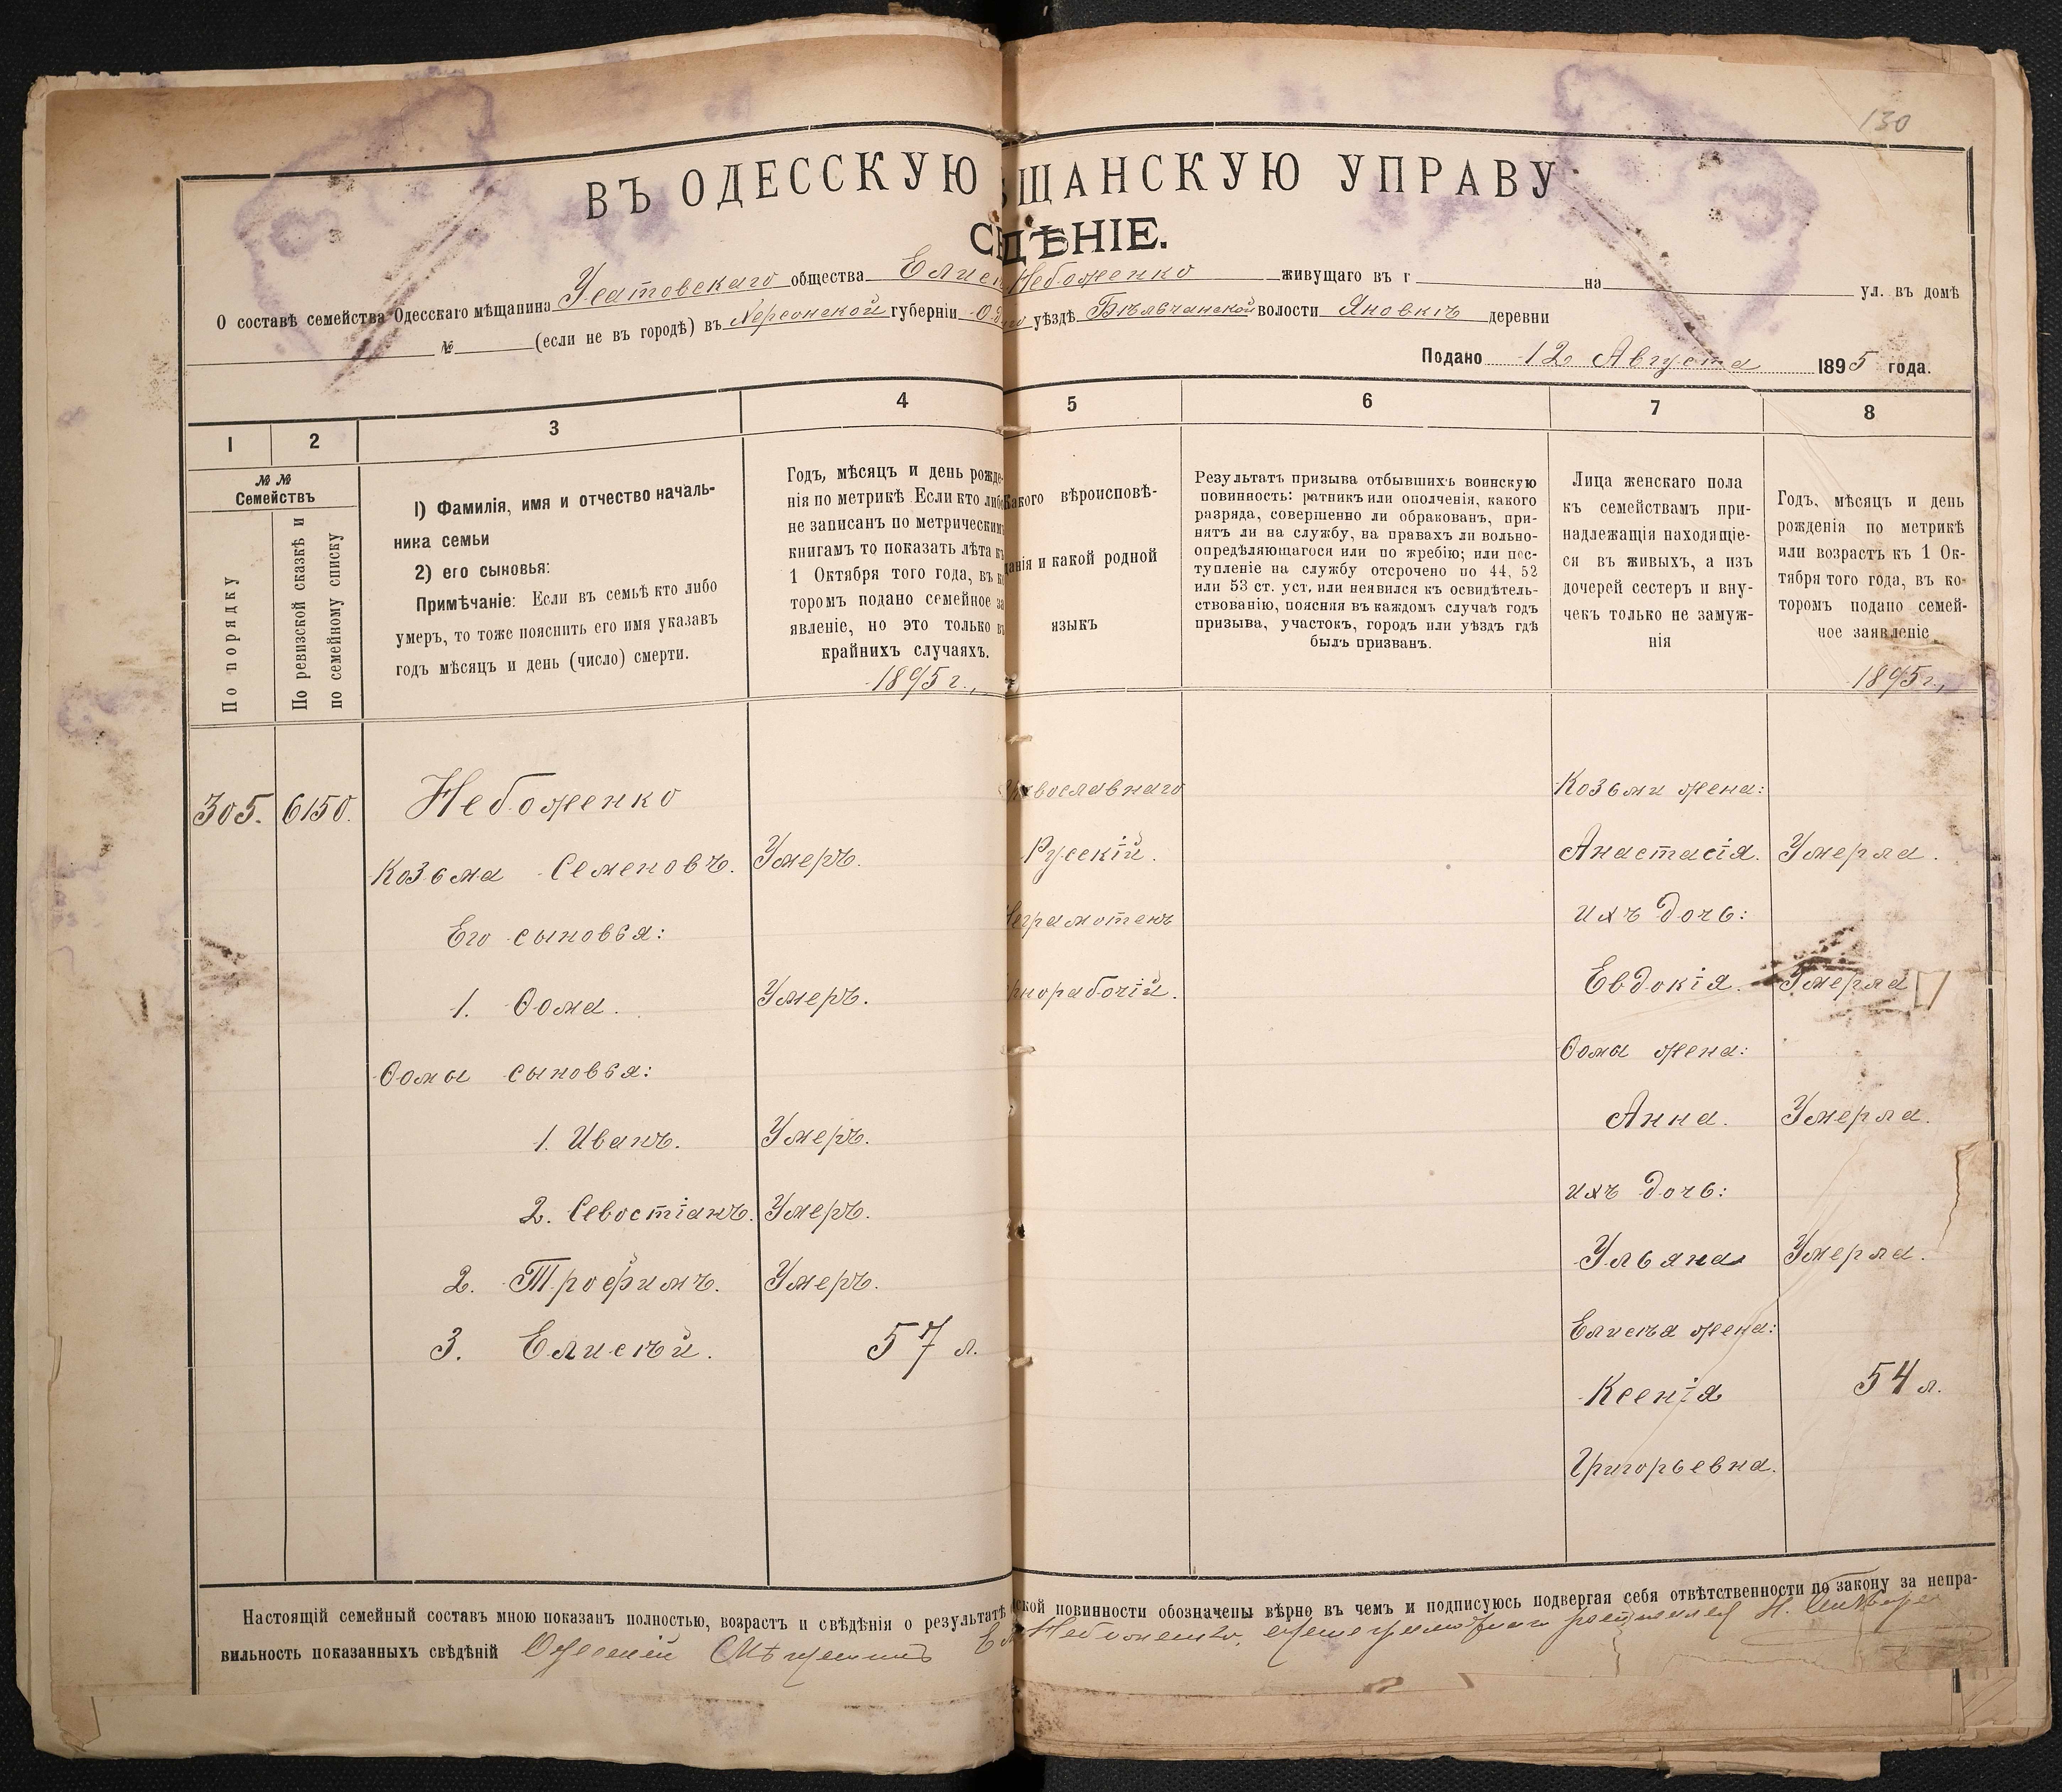 130
ВЪ ОДЕССКУЮ ѢЩАНСКУЮ УПРАВУ
С ДѢНІЕ.
О составѣ семейства Одесскаго мѣщанина Усатовскаго общества Елисе Небоженко живущаго въ г на ул. въ домѣ
№ (если не въ городѣ) въ Херсонской губерніи Од го уѣздѣ Бѣльчанской волости Яновкѣ деревни
Подано 12 Августа 1895 года.
1 2 3 4 5 6 7 8
№ № Семействъ
По порядку
По ревизской сказкѣ и
по семейному списку
1) Фамилія, имя и отчество началь-
ника семьи
2) его сыновья:
Примѣчаніе: Если въ семьѣ кто либо
умеръ, то тоже пояснить его имя указавъ
годъ мѣсяцъ и день (число) смерти.
Годъ, мѣсяцъ и день рожде-
нія по метрикѣ Если кто либо
не записанъ по метрическимъ
книгамъ то показать лѣта къ
1 Октября того года, въ ко
торомъ подано семейное за
явленіе, но это только въ
крайнихъ случаяхъ.
1895 г.,
Какого вѣроисповѣ-
данія и какой родной
языкъ
Результатъ призыва отбывшихъ воинскую
повинность: ратникъ или ополченія, какого
разряда, совершенно ли обракованъ, при-
нятъ ли на службу, на правахъ ли вольно-
опредѣляющагося или по жребію; или пос-
тупленіе на службу отсрочено по 44, 52
или 53 ст. уст. или неявился къ освидѣтель-
ствованію, поясняя въ каждомъ случаѣ годъ
призыва, участокъ, городъ или уѣздъ гдѣ
былъ призванъ.
Лица женскаго пола
къ семействамъ при-
надлежащія находящіе-
ся въ живыхъ, а изъ
дочерей сестеръ и вну-
чекъ только не замуж-
нія
Годъ, мѣсяцъ и день
рожденія по метрикѣ
или возрастъ къ 1 Ок-
тября того года, въ ко-
торомъ подано семей-
ное заявленіе
1895 г.,
305. 6150. Небоженко авославнаго Козьми жена:
Козьма Семеновъ. Умеръ. Русскій. Анастасія. Умерла.
Его сыновья: Неграмотенъ ихъ дочь:
1. Ѳома. Умеръ. рнорабочій. Евдокія. Умерла
Ѳомы сыновья: Ѳомы жена:
1. Иванъ. Умеръ. Анна. Умерла.
2. Севостіанъ. Умеръ. ихъ дочь:
2. Трофимъ. Умеръ. Ульяна Умерла.
3. Елисѣй. 57 л. Елисѣя жена:
Ксенія 54 л.
Григорьевна.
Настоящій семейный составъ мною показанъ полностью, возрастъ и свѣдѣнія о результатѣ ской повинности обозначены вѣрно въ чемъ и подписуюсь подвергая себя отвѣтственности по закону за непра-
вильность показанныхъ свѣдѣній Одесскій Мѣщанинъ Ел Небоженко,